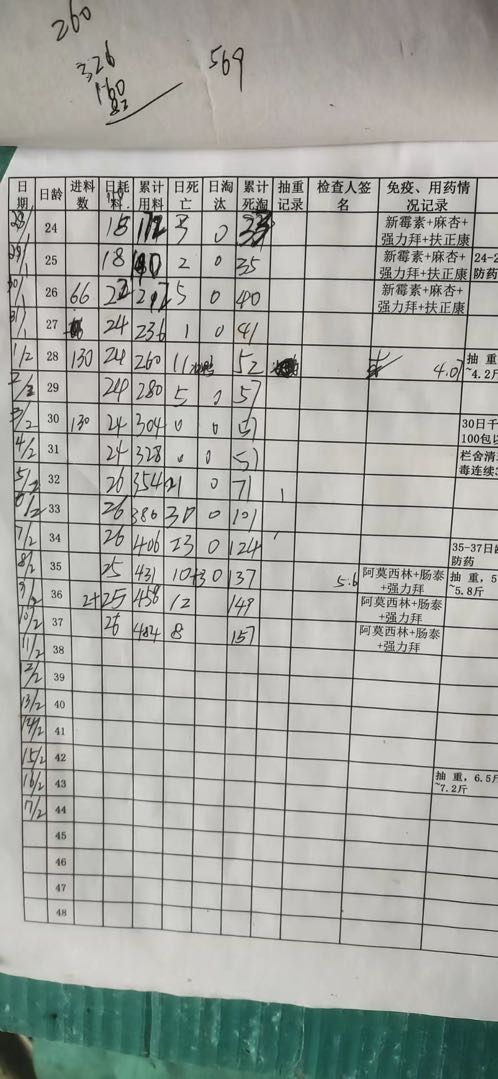 260
326
160
569
日期 日龄 进料数 日耗料 累计用料 日死亡 日淘汰 累计死淘 抽重记录 检查人签名 免疫、用药情况记录
24 18 3 0 新霉素+麻杏+强力拜+扶正康
29/1 25 18 2 0 35 新霉素+麻杏+强力拜+扶正康 24-2 防药
30/1 26 66 5 0 40 新霉素+麻杏+强力拜+扶正康
27 24 236 1 0 41
1/2 28 130 24 260 11 52 4.07 抽 重 ~4.2斤
29 24 280 5 0 57
3/2 30 130 24 304 0 0 57 30日千 100包以
4/2 31 24 328 0 0 57 栏舍清 毒连续
5/2 32 26 354 0 71
33 26 380 30 0 101
7/2 34 26 406 23 0 124
8/2 35 25 431 0 137 5.6 阿莫西林+肠泰+强力拜 35-37日 防药 抽 重，5 ~5.8斤
9/2 36 25 12 149 阿莫西林+肠泰+强力拜
10/2 37 484 8 157 阿莫西林+肠泰+强力拜
11/2 38
39
13/2 40
14/2 41
15/2 42
16/2 43 抽 重，6.5斤 ~7.2斤
44
45
46
47
48